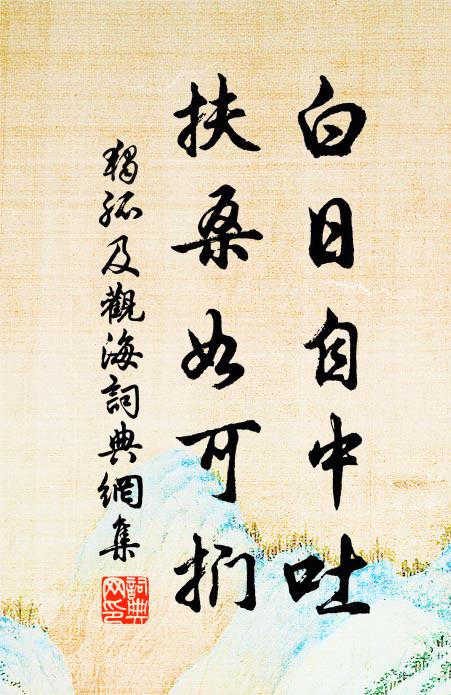 白日自中吐
扶桑如可捫
獨孤及觀海詞典網集
詞典網印